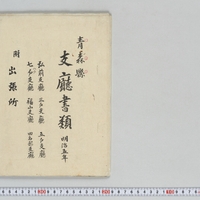 青森縣
支廳書類
明治五年
弘前支廳
三戸支廳
五戸支廳
七戸支廳
福山支廳
田名部支廳
附
出張所